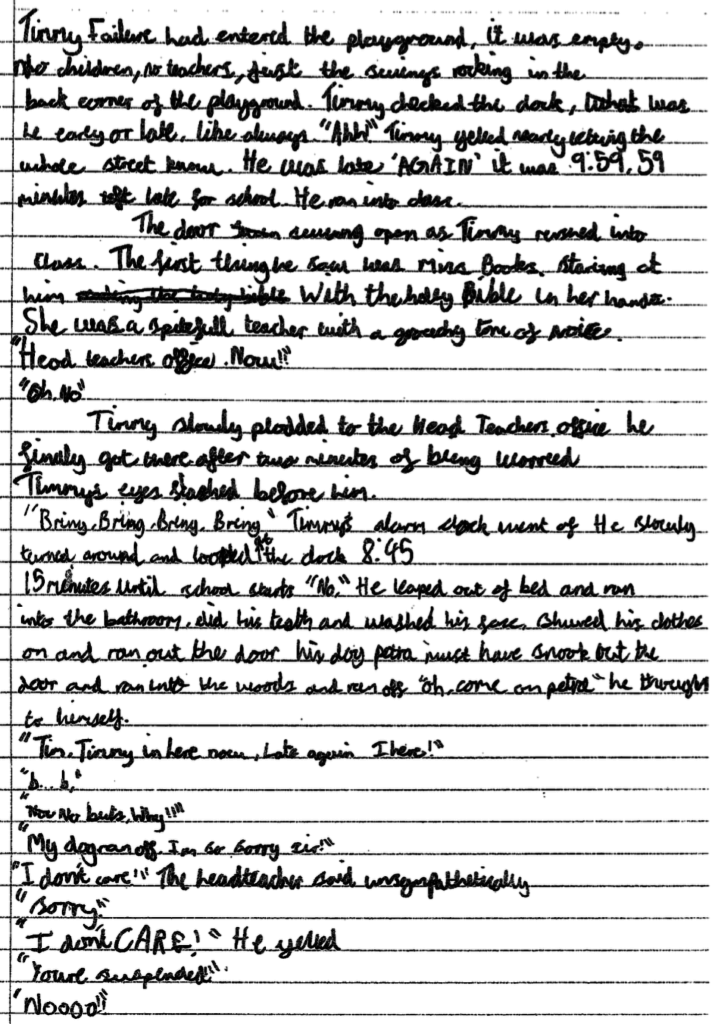 Timmy Failure had entered the playground, it was empty.
No children, no teachers, just the swings rocking in the
back corner of the playground. Timmy checked the clock, was
he early or late, like always. "Ahh" Timmy yelled nearly letting the
whole street know. He was late 'AGAIN' it was 9:59, 59
minutes late for school. He ran into class.
The door swung open as Timmy rushed into
class. The first thing he saw was Miss Books, staring at
him With the holey Bible in her hands.
She was a spitefull teacher with a grouchy tone of voice.
"Head teachers office. Now!!"
"Oh, No"
Timmy slowly plodded to the Head Teachers office he
finaley got there after two minutes of being worreed
Timmys eyes flashed before him.
"Bring, Bring, Bring, Bring" Timmys alarm clock went of He slowly
turned around and looked at the clock 8:45
15 minutes until school starts "No," He leaped out of bed and ran
into the bathroom, did his teeth and washed his face, shuved his clothes
on and ran out the door his dog petra must have snook out the
door and ran into the woods and run off "oh, come on petra" he thought
to himself.
"Tim, Timmy in here now, Late again I here!"
"b... b,"
"No buts, Why!!!"
"My dog ran off. I'm so sorry sir!"
"I don't care!!" The headteacher said unsympathetically
"Sorry"
"I don't CARE!" He yelled
"Youre suspended!!"
"Noooo!!"